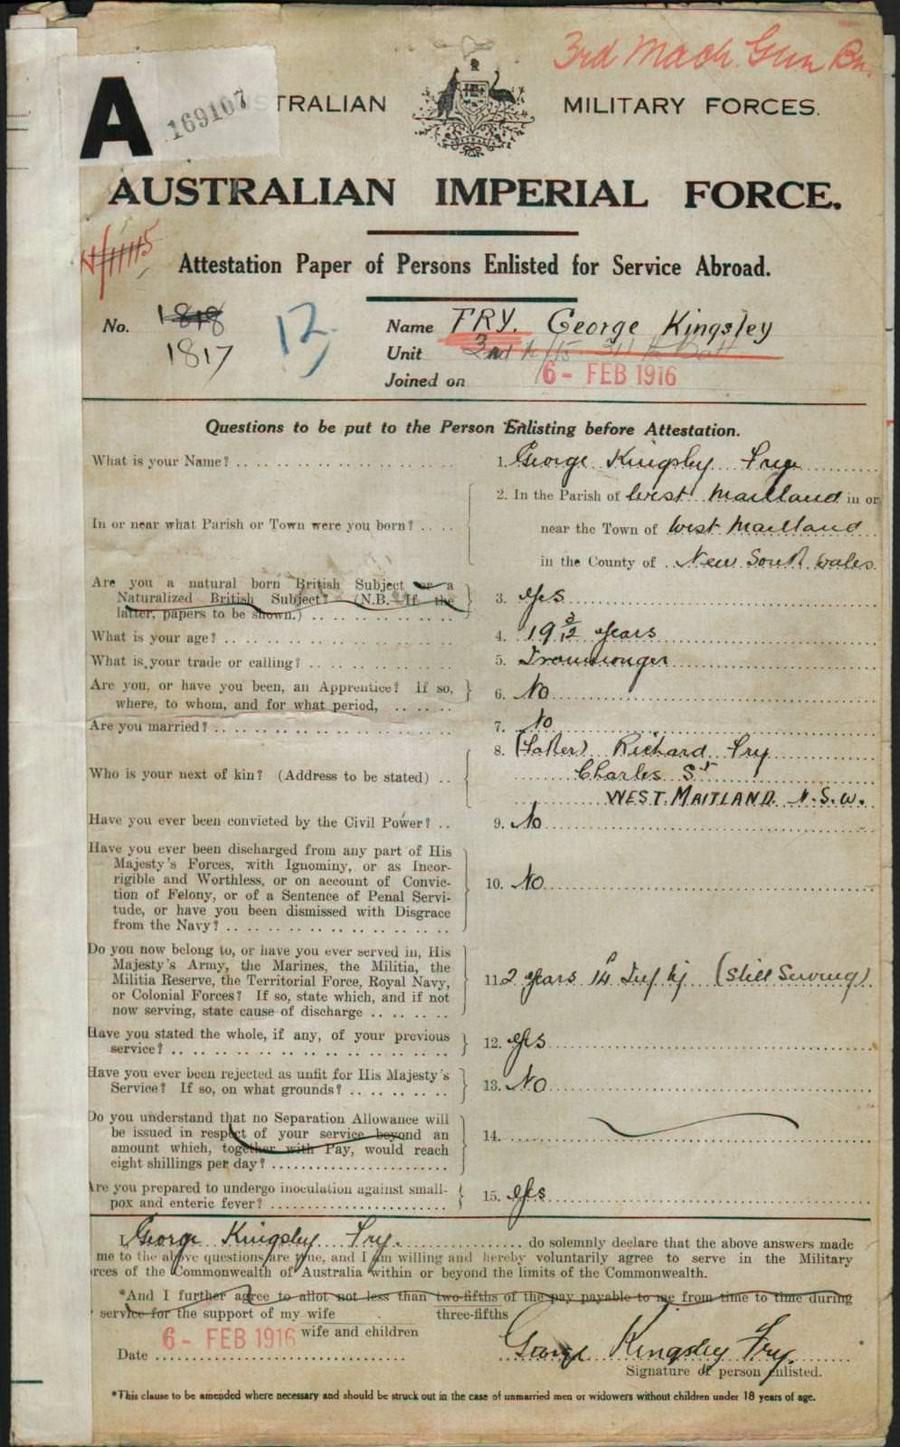 3rd Mach. Gun Bn.
A 169107 TRALIAN MILITARY FORCES.
AUSTRALIAN IMPERIAL FORCE.
Attestation Paper of Persons Enlisted for Service Abroad.
No. 1818 12 Name FRY. George Kingsley
1817 Unit
Joined on 6- FEB 1916
Questions to be put to the Person Enlisting before Attestation.
What is your Name? 1. George Kingsley Fry
2. In the Parish of West Maitland in or
In or near what Parish or Town were you born? near the Town of West Maitland
in the County of New South Wales.
Are you a natural born British Subject or a
Naturalized British Subject? (N.B. If the 3. Yes
latter, papers to be shown.)
What is your age? 4. 19 3/12 years
What is your trade or calling? 5. Ironmonger
Are you, or have you been, an Apprentice? If so, 6. No
where, to whom, and for what period,
Are you married? 7. No
8. (Father) Richard Fry
Who is your next of kin? (Address to be stated) Charles St
WEST. MAITLAND. N.S.W.
Have you ever been convicted by the Civil Power? 9. No
Have you ever been discharged from any part of His
Majesty's Forces, with Ignominy, or as Incor-
rigible and Worthless, or on account of Convic-
tion of Felony, or of a Sentence of Penal Servi- 10. No
tude, or have you been dismissed with Disgrace
from the Navy?
Do you now belong to, or have you ever served in, His
Majesty's Army, the Marines, the Militia, the
Militia Reserve, the Territorial Force, Royal Navy, 11. 2 years 14 (Still Serving)
or Colonial Forces? If so, state which, and if not
now serving, state cause of discharge
Have you stated the whole, if any, of your previous 12. Yes
service?
Have you ever been rejected as unfit for His Majesty's 13. No
Service? If so, on what grounds?
Do you understand that no Separation Allowance will
be issued in respect of your service beyond an 14.
amount which, together with Pay, would reach
eight shillings per day?
Are you prepared to undergo inoculation against small- 15. Yes
pox and enteric fever?
I, George Kingsley Fry. do solemnly declare that the above answers made
me to the above questions are true, and I am willing and hereby voluntarily agree to serve in the Military
rces of the Commonwealth of Australia within or beyond the limits of the Commonwealth.
*And I further agree to allot not less than two-fifths of the pay payable to me from time to time during
service for the support of my wife three-fifths
6- FEB 1916 wife and children
Date George Kingsley Fry.
Signature of person enlisted.
*This clause to be amended where necessary and should be struck out in the case of unmarried men or widowers without children under 18 years of age.